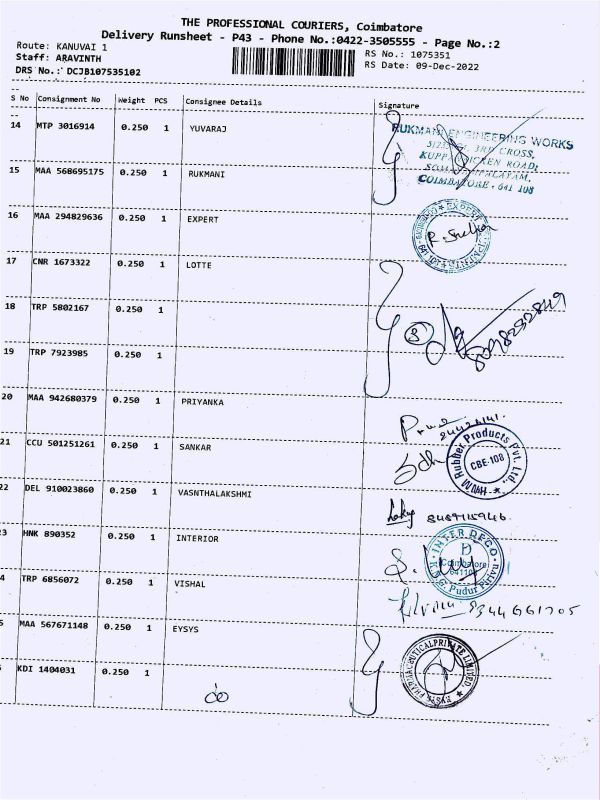 THE PROFESSIONAL COURIERS, Coimbatore
Delivery Runsheet - P43 - Phone No.:0422-3505555 - Page No.:2
Route: KANUVAI 1
Staff: ARAVINTH
DRS No.: DCJB107535102
RS No.: 1075351
RS Date: 09-Dec-2022
S No Consignment No Weight PCS Consignee Details Signature
14 MTP 3016914 0.250 1 YUVARAJ
RUKMANI ENGINEERING WORKS
3RD CROSS,
ROAD,
COIMBATORE - 641 108
15 MAA 568695175 0.250 1 RUKMANI
16 MAA 294829636 0.250 1 EXPERT
17 CNR 1673322 0.250 1 LOTTE
18 TRP 5802167 0.250 1
3
19 TRP 7923985 0.250 1
20 MAA 942680379 0.250 1 PRIYANKA
21 CCU 501251261 0.250 1 SANKAR
Rubber Products Pvt. Ltd.,
CBE-108
22 DEL 910023860 0.250 1 VASNTHALAKSHMI
3 HNK 890352 0.250 1 INTERIOR
INTER DECO
Coimbatore
K.N.G. Pudur Pirivu
4 TRP 6856072 0.250 1 VISHAL
5 MAA 567671148 0.250 1 EYSYS
EYSYS PHARMACEUTICAL PRIVATE LIMITED
KDI 1404031 0.250 1
do